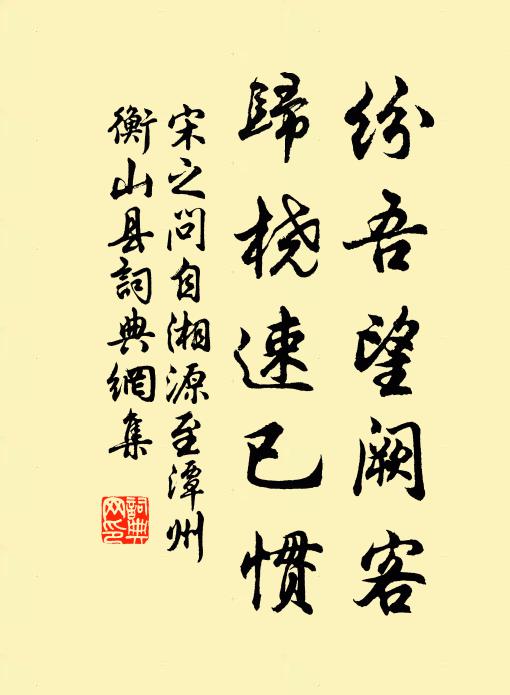 纷吾望阙客
归桡速已惯
宋之问自湘源至潭州
衡山县词典网集
词典网印